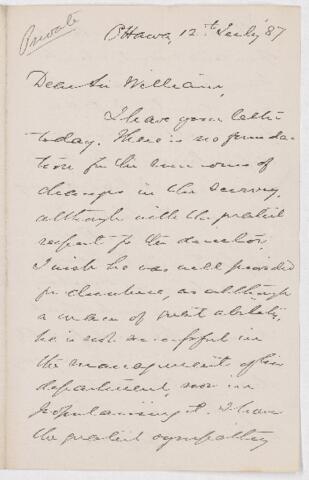 Private
Ottawa, 12th July '87
Dear Sir William,
I have your letter
today. There is no founda-
tion for the rumours of
changes in the survey,
although with the greatest
respect for the director,
I wish he was well provided
for elsewhere, as although
a man of great ability,
he is not successful in
the management of his
department, nor in
popularising it. I have
the greatest sympathy